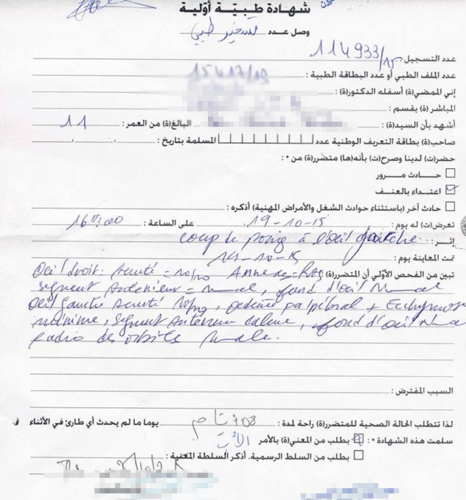 شهادة طبية أولية
وصل عدد تسخير طبي
عدد التسجيل 114933/15
عدد الملف الطبي أو عدد البطاقة الطبية:
إني الممضي(ة) أسفله الدكتور(ة):
المباشر(ة) بقسم:
أشهد بأن السيد(ة) البالغ(ة) من العمر: 11
صاحب(ة) بطاقة التعريف الوطنية عدد المسلمة بتاريخ:
حضر(ت) لدينا وصرح(ت) بأنه(ها) متضرر(ة) من *:
حادث مرور
اعتداء بالعنف
حادث آخر (باستثناء حوادث الشغل والأمراض المهنية) أذكره:
تعرض(ت) له يوم: 19-10-15 على الساعة: 16H00
إثر: coup de poing à l'oeil gauche
تمت المعاينة يوم:
تبين من الفحص الأولي أن المتضرر(ة) Oeil droit: acuité = Annexe = RAS
segment antérieur = fond d'oeil
oeil gauche acuité oedème palpébral +
minime, segment antérieur calme, fond d'oeil
radio des orbites
السبب المفترض:
لذا تتطلب الحالة الصحية للمتضرر(ة) راحة لمدة: يوما ما لم يحدث أي طارئ في الأثناء
سلمت هذه الشهادة *: بطلب من المعني(ة) بالأمر
بطلب من السلط الرسمية. أذكر السلطة المعنية: